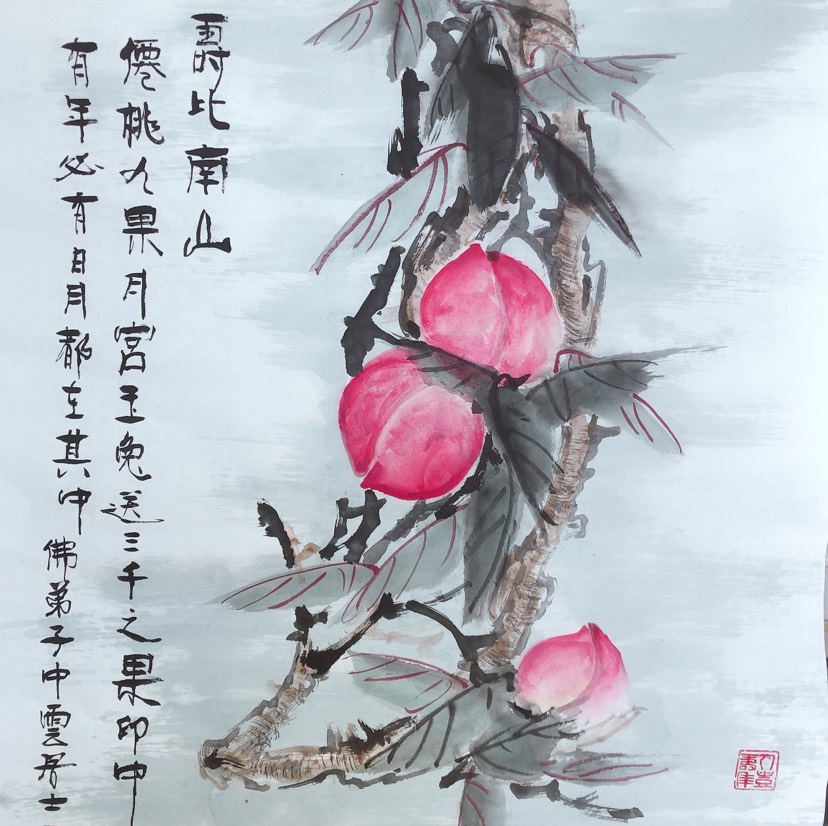 壽比南山
僊桃九果月宮玉兔送三千之果印中
有年必有日月都在其中
佛弟子中雲居士